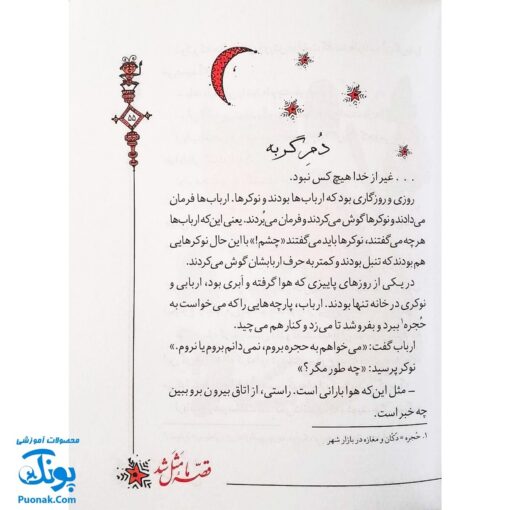 ۵۵
دُمِ گربه
. . . غیر از خدا هیچ کس نبود.
روزی و روزگاری بود که ارباب‌ها بودند و نوکرها. ارباب‌ها فرمان
می‌دادند و نوکرها گوش می‌کردند و فرمان می‌بُردند. یعنی این‌که ارباب‌ها
هر چه می‌گفتند، نوکرها باید می‌گفتند «چشم!» با این حال نوکرهایی
هم بودند که تنبل بودند و کمتر به حرف اربابشان گوش می‌کردند.
در یکی از روزهای پاییزی که هوا گرفته و اَبری بود، اربابی و
نوکری در خانه تنها بودند. ارباب، پارچه‌هایی را که می‌خواست به
حُجره۱ ببرد و بفروشد تا می‌زد و کنار هم می‌چید.
ارباب گفت: «می‌خواهم به حجره بروم، نمی‌دانم بروم یا نروم.»
نوکر پرسید: «چه طور مگر؟»
– مثل این‌که هوا بارانی است. راستی، از اتاق بیرون برو ببین
چه خبر است.
۱. حُجره = دکّان و مغازه در بازار شهر
قصه ما مَثَل شد
محصولات آموزشی
پونک
Puonak.Com